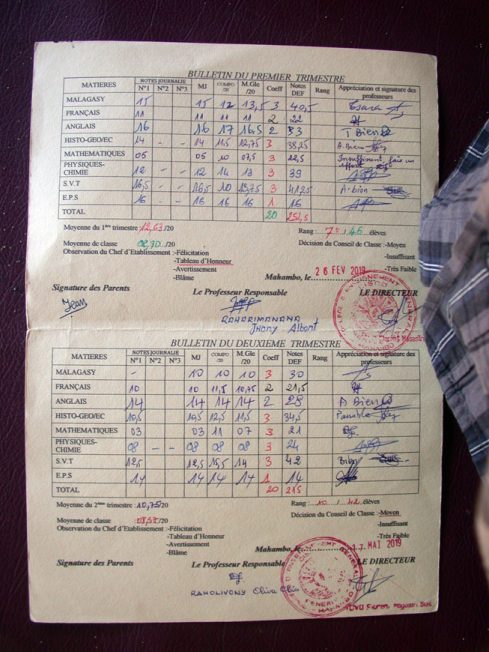 BULLETIN DU PREMIER TRIMESTRE
MATIERES NOTES JOURNALIE MJ COMPO /20 M.Gle /20 Coeff Notes DEF Rang Appréciation et signature des professeurs
N°1 N°2 N°3
MALAGASY 15 15 12 13,5 3 40,5 Tsara
FRANÇAIS 11 11 11 11 2 22
ANGLAIS 16 16 17 16,5 2 33 T Bien
HISTO-GEO/EC 14 - - 14 11,5 12,75 3 38,25 A. Bien
MATHEMATIQUES 05 05 10 07,5 3 22,5 Insuffisant, fais un effort
PHYSIQUES-CHIMIE 12 - - 12 14 13 3 39
S.V.T 16,5 - - 16,5 10 13,75 3 41,25 A. bien
E.P.S 16 16 16 16 1 16
TOTAL 20 252,5
Moyenne du 1ère trimestre 12,63/20 Rang : 7è / 46 élèves
Moyenne de classe /20 Décision du Conseil de Classe :-Moyen
Observation du Chef d'Etablissement :-Félicitation -Insuffisant
-Tableau d'Honneur -Très Faible
-Avertissement
-Blâme Mahambo, le 26 FEV 2019
Signature des Parents Le Professeur Responsable LE DIRECTEUR
Jean
RAHARIMANANA
Jhony Albert
BULLETIN DU DEUXIEME TRIMESTRE
MATIERES NOTES JOURNALIE MJ COMPO /20 M.Gle /20 Coeff Notes DEF Rang Appréciation et signature des professeurs
N°1 N°2 N°3
MALAGASY - 10 10 10 3 30
FRANÇAIS 10 10 11,5 10,75 2 21,5
ANGLAIS 14 14 14 14 2 28 A Bien
HISTO-GEO/EC 10,5 10,5 12,5 11,5 3 34,5 Passable
MATHEMATIQUES 03 03 11 07 3 21
PHYSIQUES-CHIMIE 08 - - 08 08 08 3 24
S.V.T 12,5 12,5 15,5 14 3 42 Bien
E.P.S 14 14 14 14 1 14
TOTAL 20 215
Moyenne du 2ème trimestre 10,75/20 Rang : 10 / 42 élèves
Moyenne de classe : /20 Décision du Conseil de Classe :-Moyen
Observation du Chef d'Etablissement :-Félicitation -Insuffisant
-Tableau d'Honneur -Très Faible
-Avertissement
-Blâme Mahambo, le MAI 2019
Signature des Parents Le Professeur Responsable LE DIRECTEUR
RAHOLIVONY